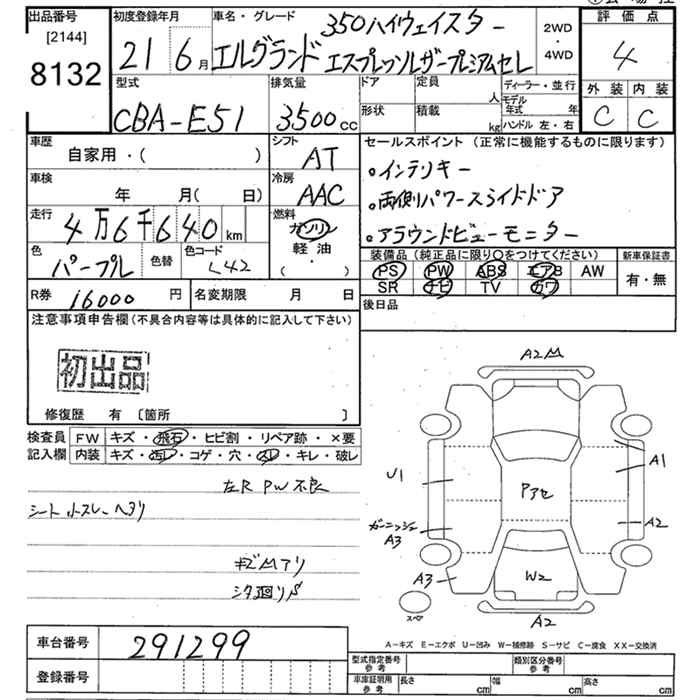 出品番号 初度登録年月 車名・グレード 350ハイウェイスター 2WD・4WD 評価点
[2144] 8132 21 6月 エルグランド エスプレッソレザープレミアムセレ 4
型式 排気量 ドア 定員 人 ディーラー・並行 外装 内装
CBA-E51 3500cc 形状 積載 kg モデル年式 年 ハンドル 左・右 C C
車歴 シフト セールスポイント (正常に機能するものに限ります)
自家用・( ) AT 。インテリキー
車検 冷房
年 月( 日) AAC 。両側パワースライドドア
走行 燃料
4万6千640km ガソリン 軽油 ( ・ ) 。アラウンドビューモニター
色 色替 色コード 装備品(純正品に限り○をつけてください) 新車保証書
パープル L42 PS PW ABS エアB AW 有・無
R券 16000円 名変期限 月 日 SR ナビ TV カワ
後日品
注意事項申告欄(不具合内容等は具体的に記入して下さい)
初出品
修復歴 有 〔箇所 〕
検査員 FW キズ・飛石・ヒビ割・リペア跡・×要
記入欄 内装 キズ・汚レ・コゲ・穴・スレ・キレ・破レ
左R PW不良
シート 小スレ ヘタリ
キズMアリ
シタ廻りS
A2 M
A1
U1
Pアセ
ガーニッシュ A3
A2
A3
W2
スペア
A2
車台番号 291299
A−キズ E−エクボ U−凹み W−補修跡 S−サビ C−腐食 XX−交換済
登録番号
型式指定番号 参考 類別区分番号 参考
車庫証明用 参考 長さ cm 幅 cm 高さ cm